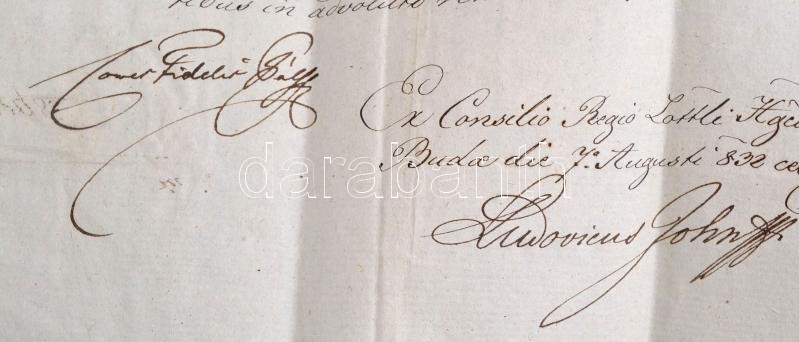 in advoluto
Comes Fidelis Pálffy
Ex Consilio Regio Locttli Hgco
Budæ die 7a Augusti 832
Ludovicus John
darabanth